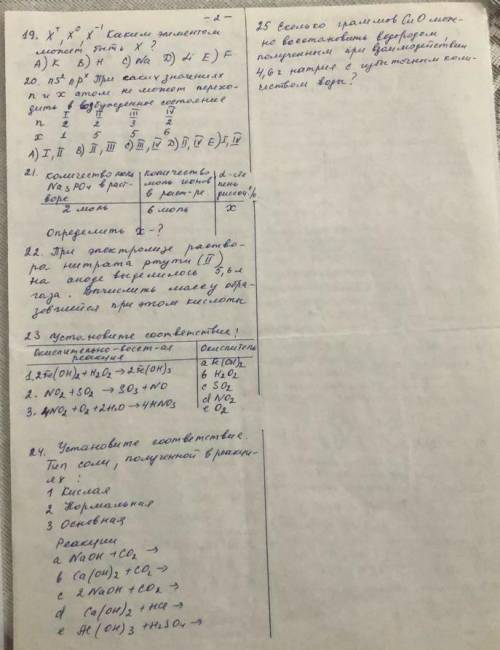 - 2 -
19. X⁺, X⁰, X⁻¹ Каким элементом
может быть X ?
A) K B) H C) Na D) Li E) F
20. nS² nPˣ При каких значениях
n и x атом не может перехо-
дить в возбужденное состояние
I II III IV
n 2 2 3 2
x 1 5 5 6
A) I, II B) II, III C) III, IV D) II, IV E) I, IV
21.
количество моль Na₃PO₄ в раст-воре | количество моль ионов в раст-ре | α-сте пень диссоц. %
2 моль | 6 моль | x
Определить X - ?
22. При электролизе раство-
ра нитрата ртути (II)
на аноде выделилось 5,6 л
газа. Вычислить массу обра-
зовшейся при этом кислоты
23 Установите соответствие!
Окислительно-восст-ая реакция | Окислитель
1. 2Fe(OH)₂ + H₂O₂ → 2Fe(OH)₃
2. NO₂ + SO₂ → SO₃ + NO
3. 4NO₂ + O₂ + 2H₂O → 4HNO₃
a Fe(OH)₂
b H₂O₂
c SO₂
d NO₂
e O₂
24. Установите соответствие.
Тип соли, полученной в реакци-
ях :
1 Кислая
2 Нормальная
3 Основная
Реакции
a NaOH + CO₂ →
b Ca(OH)₂ + CO₂ →
c 2NaOH + CO₂ →
d Ca(OH)₂ + HCl →
e Al(OH)3 + H₂SO₄ →
25 Сколько граммов CuO мож-
но восстановить водородом,
полученным при взаимодействии
4,6 г натрия с избыточным коли-
чеством воды?